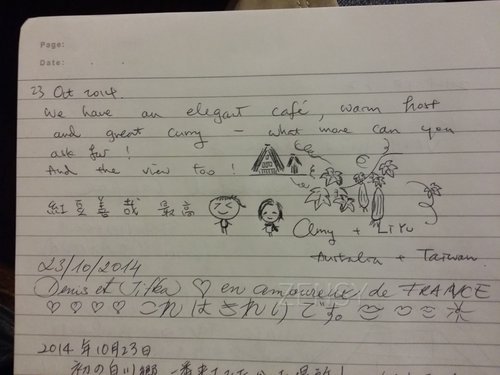 Page:
Date:
23 Oct 2014.
We have an elegant café, warm host
and great curry – what more can you
ask for!
And the view too!
紅豆善哉 最高
Amy + Li Yu
Australia + Taiwan
23/10/2014
Denis et (Tifka) ♡ en amoureux de FRANCE
♡ ♡ ♡ ♡ これはきれいです。
2014年10月23日
初の白川郷